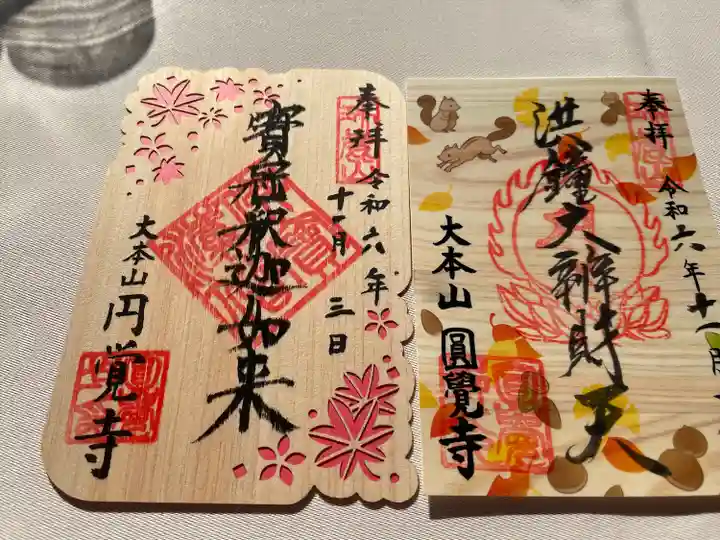 奉拝
令和六年
十一月三日
寳冠釈迦如来
大本山円覚寺
奉拝
令和六年十一月
洪鐘大辨財天
大本山圓覺寺